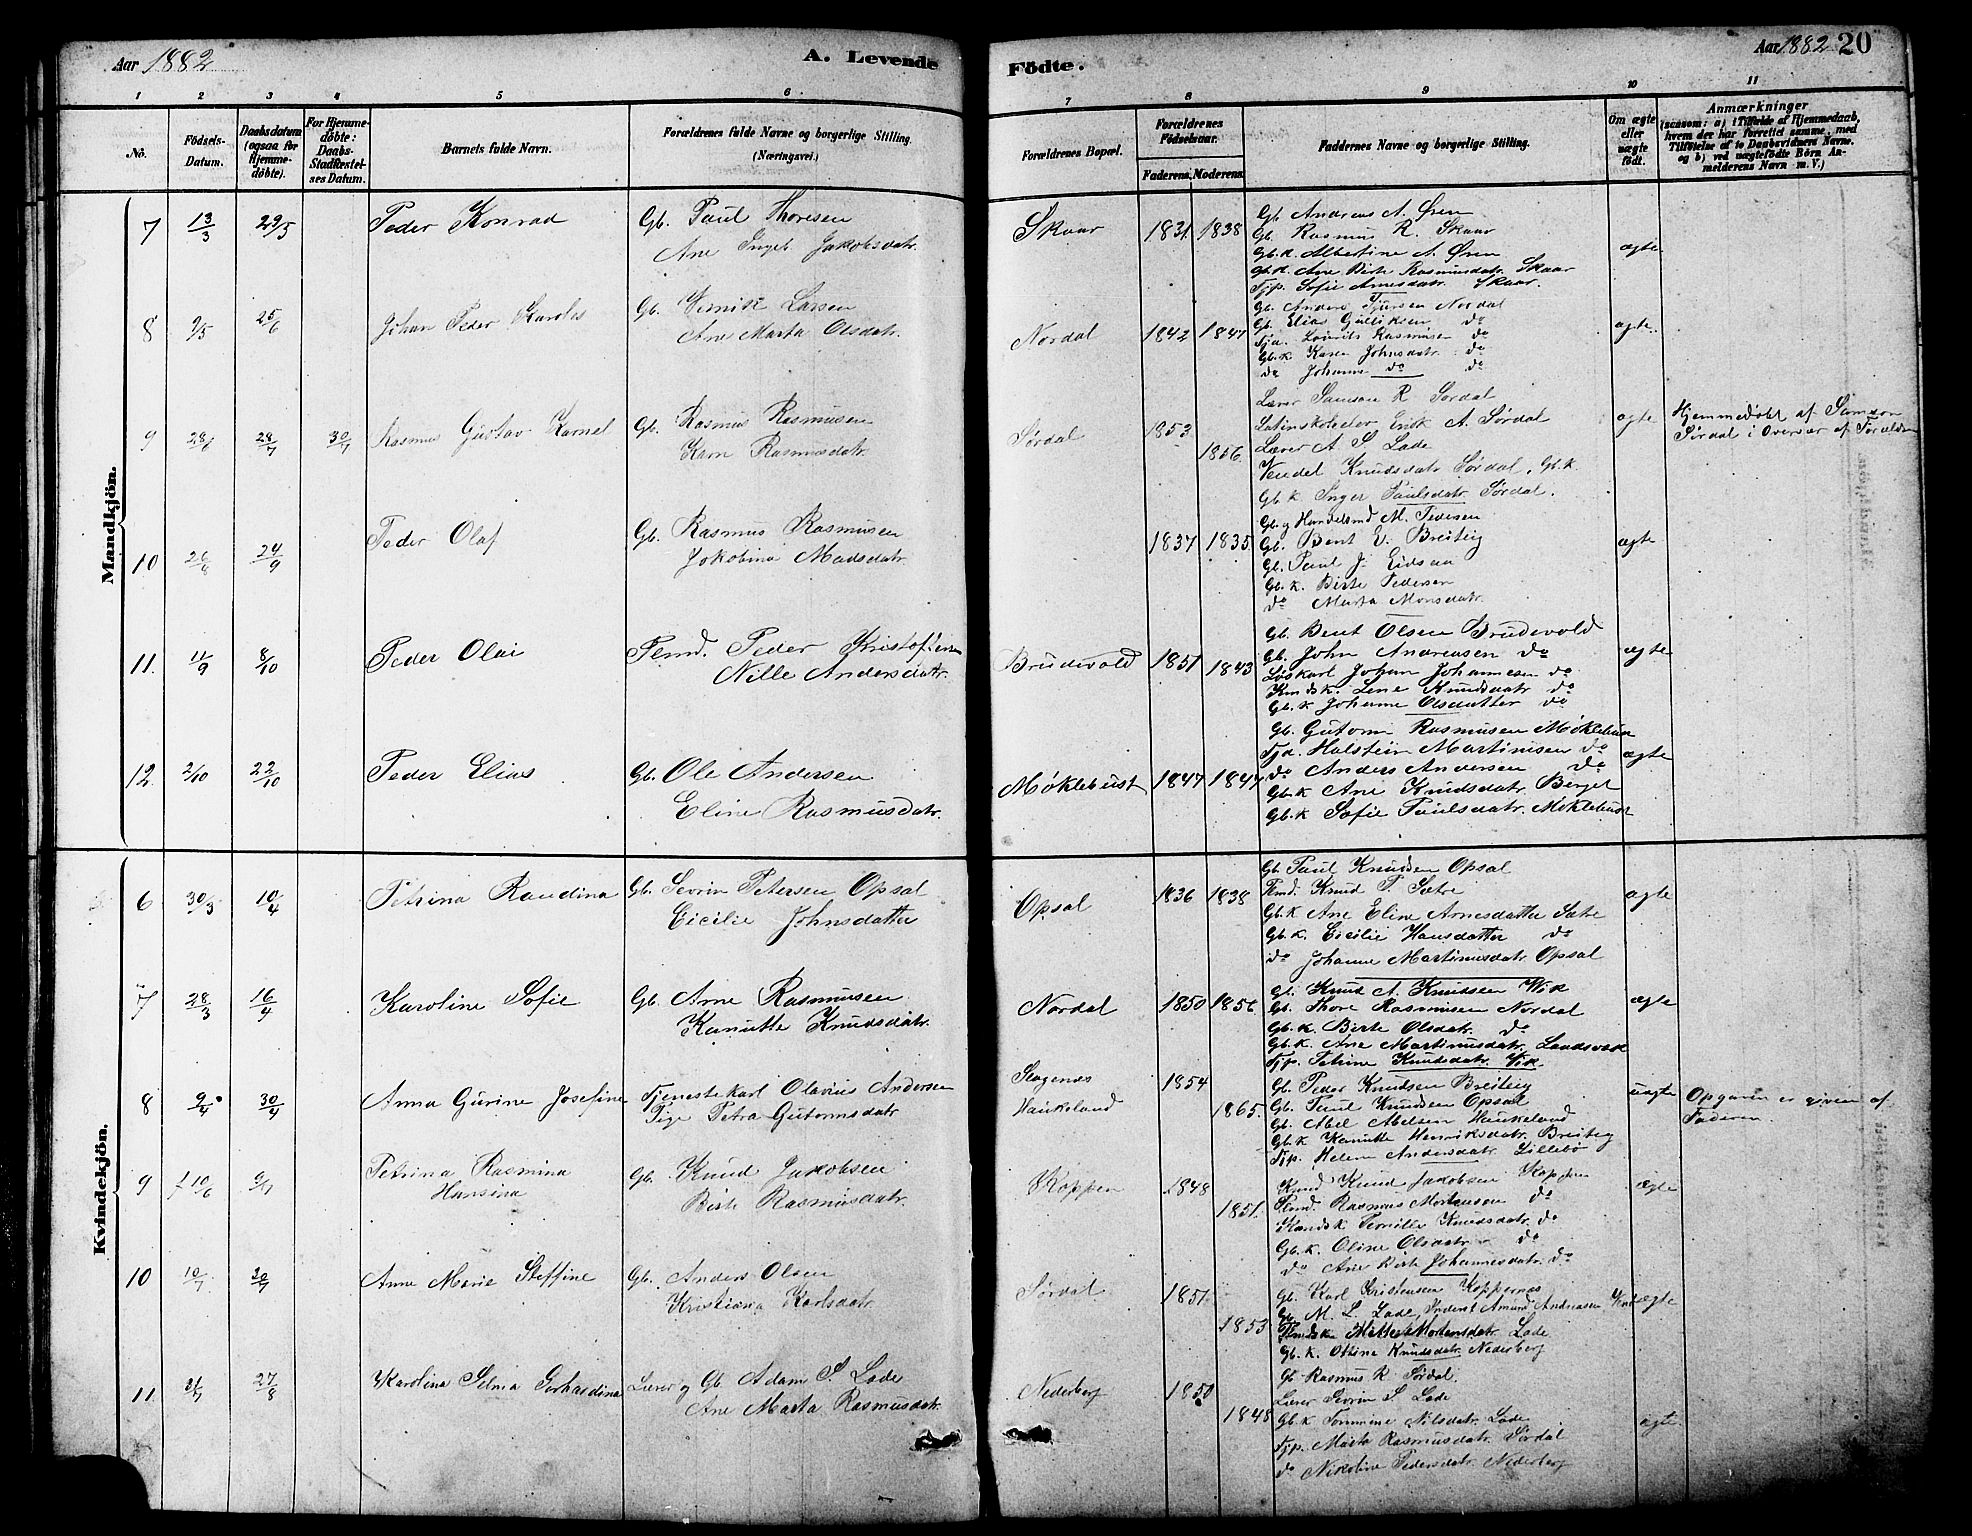 Aar 1882
A. Levende Födte.
Aar 1882 20
1 2 3 4 5 6 7 8 9 10 11
No.
Födsels-Datum.
Daabsdatum (ogsaa for Hjemme-döbte).
For Hjemme-döbte: Daabs-Stadfæstel-ses Datum.
Barnets fulde Navn.
Forældrenes fulde Navne og borgerlige Stilling.
(Næringsvei.)
Forældrenes Bopæl.
Forældrenes Födselsaar.
Faderens. Moderens.
Faddernes Navne og borgerlige Stilling.
Om ægte eller uægte födt.
Anmærkninger
(saasom: a) i Tilfælde af Hjemmedaab,
hvem der har forrettet samme, med
Tilföielse af to Daabsvidners Navne.
og b) ved uægtefödte Börn An-
melderens Navn m. V.)
Mandkjön.
7 13/3 29/5 Peder Konrad
Gb. Paul Thoresen
Ane Ingeb. Jakobsdatr.
Skaar 1831 1838
Gb. Andreas A. Øren
Gb. Rasmus R. Skaar
Gb.k. Albertine A. Øren
Gb.k. Ane Birte Rasmusdatr. Skaar
Tjp. Sofie Arnesdatr. Skaar.
ægte
8 9/5 25/6 Johan Peder Karolus
Gb. Larsen
Ane Marta Olsdatr.
Nordal 1842 1847
Gb. Anders Nordal
Gb. Elias Gulliksen do
Tjd. Lourits Rasmusen do
Gb.k Karen Johnsdatr. do
do Johanne do do
ægte
9 28/6 28/7 30/7 Rasmus Gustav Karnel
Gb. Rasmus Rasmusen
Karn Rasmusdatr.
Sørdal 1853 1856
Lærer Samson R Sørdal
Latinskoleelev A. Sørdal
Lærer A S Lade
Vendel Knudsdatr Sørdal, Gb.k.
Gb.k Inger Paulsdatr. Sørdal.
ægte
Hjemmedøbt af Samson
Sørdal i Overvær af Forældre
10 26/8 24/9 Peder Olaf
Gb. Rasmus Rasmusen
Jakobina Madsdatr.
1837 1835
Gb. g Handelsmd M. Pedersen
Gb. Bent E. Breiteig
Gb. Paul J. Eidsaa
Gb.k. Birte Pedersen
do Marta Monsdatr.
ægte
11. 11/9 8/10 Peder Olai
Femd. Peder Kristofersen
Nille Andersdatr.
Brudevold 1851 1843
Gb. Bent Olsen Brudevold
Gb. John Andreasen do
Løskarl Johan Johannesen do
Kmdsk. Lene Knudsdatr do
Gb.k Johanne Olsdatter do
ægte
12. 2/10 22/10 Peder Elias
Gb. Ole Andersen
Eline Rasmusdatr.
Møklebust 1847 1847
Gb. Gutorm Rasmusen Møklebust
Tjd. Halstein Martinusen do
do Anders Andersen do
Gb.k Ane Knudsdatr. Berget
Gb.k Sofie Paulsdatr. Møklebust
ægte
Kvindekjön.
6 30/3 10/4 Petrina Raudina
Gb. Sevrin Petersen Opsal
Cicilie Johnsdatter
Opsal 1836 1838
Gb. Paul Knudsen Opsal
Femd. Knud P. Sætre
Gb.k Ane Eline Arnesdatter Sætre
Gb.k. Cicilie Hansdatter do
do Johanne Martinusdatr Opsal
ægte
7 28/3 16/4 Karoline Sofie
Gb. Arne Rasmusen
Kanutte Knudsdatr.
Nordal 1850 1856
Gb. Knud A. Knudsen Vik
Gb. Thore Rasmusen Nordal
Gb.k. Birte Olsdatr. do
Gb.k Ane Martinusdatr. Landsvæk
Tjp. Petrine Knudsdatr. Vik.
ægte
8 9/4 30/4 Anna Gurine Josefine
Tjenestekarl Olavius Andersen
Pige Petra Gutormsdatr
Slagenæs Haukeland 1854 1865.
Gb. Peder Knudsen Breiteig
Gb. Paul Knudsen Opsal
Gb. Abel Abelsen Haukeland
Gb.k Kanutte Henriksdatr. Breiteig
Tjp. Helene Andersdatr Lillebø
uægte
Opgaven er given af
Faderen.
9 10/6 9/7 Petrina Rasmina
Hansina
Gb. Knud Jakobsen
Birte Rasmusdatr.
Koppen 1848 1851.
Kmd Knud Jakobsen Koppen
Femd. Rasmus Mortensen do
Kandsk Pernille Knudsdatr. do
Gb.k. Oline Olsdatr. do
do Ane Birte Johannesdatr. do
ægte
10 10/7 30/7 Anne Marie Steffine
Gb. Anders Olsen
Kristiana Karlsdatr.
Sørdal 1851. 1853
Gb. Karl Kristensen Koppernæs
Gb. M. L. Lade, Inderst Amund Andreasen
Mette Mortensdatr. Lade
Gb.k. Othine Knudsdatr. Nederberg
ægte
11. 31/7 27/8 Karolina Selma Gerhardina
Lærer og Gb. Adam S. Lade
Ane Marta Rasmusdatr.
Nederberg 1850 1848
Gb. Rasmus R Sørdal.
Lærer Sevrin S. Lade
Gb.k Tommine Nilsdatr. Lade
Tjp. Marta Rasmusdatr. Sørdal
do Nikoline Pedersdatr. Nederberg
ægte.